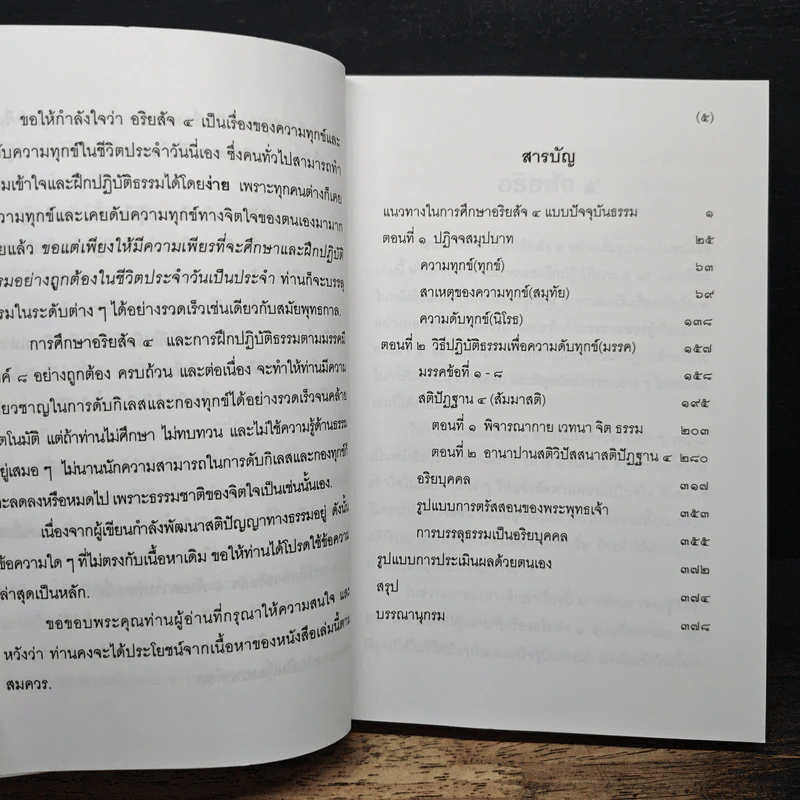 ขอให้กำลังใจว่า อริยสัจ ๔ เป็นเรื่องของความทุกข์และ
ับความทุกข์ในชีวิตประจำวันนี่เอง ซึ่งคนทั่วไปสามารถทำ
มเข้าใจและฝึกปฏิบัติธรรมได้โดยง่าย เพราะทุกคนต่างก็เคย
วามทุกข์และเคยดับความทุกข์ทางจิตใจของตนเองมามาก
ยแล้ว ขอแต่เพียงให้มีความเพียรที่จะศึกษาและฝึกปฏิบัติ
รมอย่างถูกต้องในชีวิตประจำวันเป็นประจำ ท่านก็จะบรรลุ
รมในระดับต่าง ๆ ได้อย่างรวดเร็วเช่นเดียวกับสมัยพุทธกาล.
การศึกษาอริยสัจ ๔ และการฝึกปฏิบัติธรรมตามมรรคมี
งค์ ๘ อย่างถูกต้อง ครบถ้วน และต่อเนื่อง จะทำให้ท่านมีความ
ยวชาญในการดับกิเลสและกองทุกข์ได้อย่างรวดเร็วจนคล้าย
ตโนมัติ แต่ถ้าท่านไม่ศึกษา ไม่ทบทวน และไม่ใช้ความรู้ด้านธรรม
ยู่เสมอ ๆ ไม่นานนักความสามารถในการดับกิเลสและกองทุกข์ก็
ะลดลงหรือหมดไป เพราะธรรมชาติของจิตใจเป็นเช่นนั้นเอง.
เนื่องจากผู้เขียนกำลังพัฒนาสติปัญญาทางธรรมอยู่ ดังนั้น
ข้อความใด ๆ ที่ไม่ตรงกับเนื้อหาเดิม ขอให้ท่านได้โปรดใช้ข้อความ
ล่าสุดเป็นหลัก.
ขอขอบพระคุณท่านผู้อ่านที่กรุณาให้ความสนใจ และ
หวังว่า ท่านคงจะได้ประโยชน์จากเนื้อหาของหนังสือเล่มนี้ตาม
สมควร.
(๕)
สารบัญ
แนวทางในการศึกษาอริยสัจ ๔ แบบปัจจุบันธรรม ๑
ตอนที่ ๑ ปฏิจจสมุปบาท ๒๕
ความทุกข์(ทุกข์) ๖๓
สาเหตุของความทุกข์(สมุทัย) ๖๙
ความดับทุกข์(นิโรธ) ๑๓๘
ตอนที่ ๒ วิธีปฏิบัติธรรมเพื่อความดับทุกข์(มรรค) ๑๕๗
มรรคข้อที่ ๑ - ๘ ๑๕๘
สติปัฏฐาน ๔ (สัมมาสติ) ๑๙๕
ตอนที่ ๑ พิจารณากาย เวทนา จิต ธรรม ๒๐๓
ตอนที่ ๒ อานาปานสติวิปัสสนาสติปัฏฐาน ๔ ๒๘๐
อริยบุคคล ๓๑๗
รูปแบบการตรัสสอนของพระพุทธเจ้า ๓๕๓
การบรรลุธรรมเป็นอริยบุคคล ๓๕๕
รูปแบบการประเมินผลด้วยตนเอง ๓๗๒
สรุป ๓๗๔
บรรณานุกรม ๓๗๘